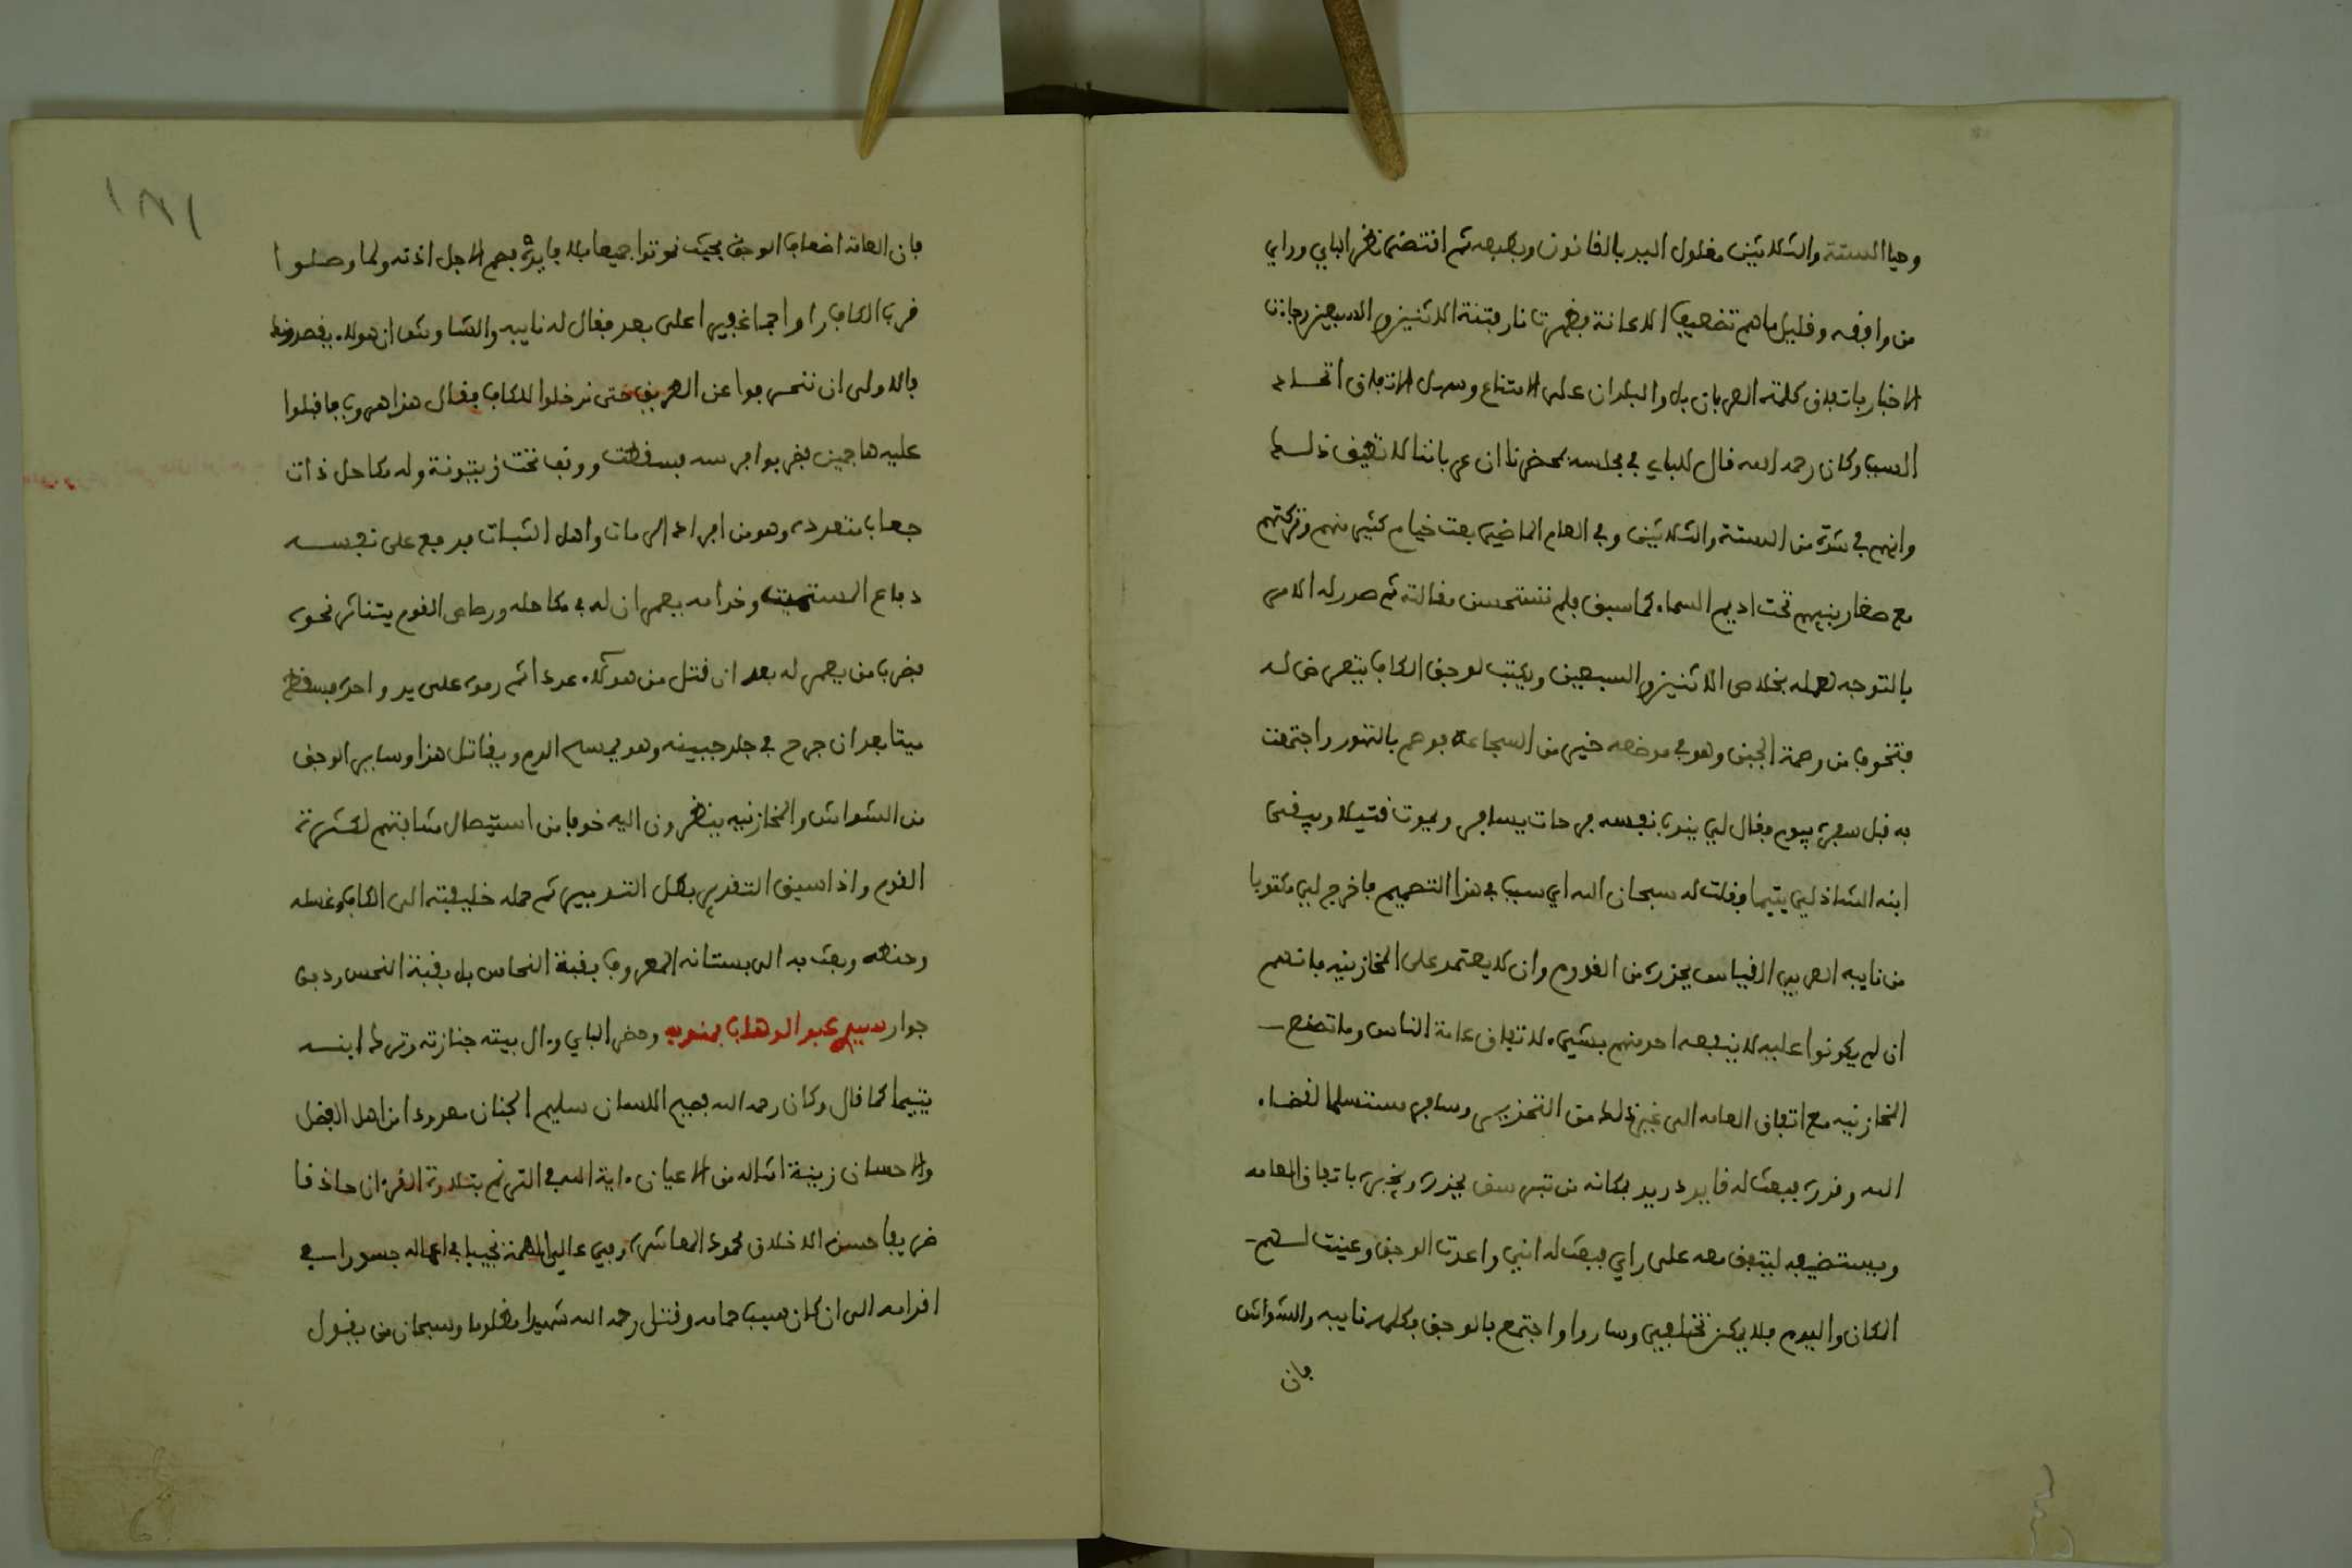 وحيا الستة والثلاثين مغلول اليد بالقانون وبطبعه ثم اقتضى نظر الباي وراي
من وافقه وقليل ما هم تضعيف الاعانة فظهرت نار فتنة الاثنين والسبعين وجاءت
الاخبار باتفاق كلمة العربان بل والبلدان على الامتناع وسهل الاتفاق اتحاد
السبب وكان رحمه الله قال للباي في مجلسه بمحضرنا ان عرباننا لا تطيق ذلك
وانهم في شدة من الستة والثلاثين وفي العام الماضي بعت خيام كثير منهم وتركتهم
مع صغار بنيهم تحت اديم السماء كما سبق فلم نستحسن مقالته ثم صدر له الامر
بالتوجه لعمله بخلاص الاثنين والسبعين ويكتب لوجق الكاف يتعرض له
فتخوف من وصمة الجبن وهو في موضعه خير من الشجاعة فوهم بالتهور واجتمعت
به قبل سفره بيوم فقال لي ينوب بنفسه فرحات يسافر ويموت قتيلا ويبقى
ابنه الشاذلي يتيما وقلت له سبحان الله اي سبب في هذا التصميم فاخرج لي مكتوبا
من نايبه العربي القياس يحذره من القدوم وان لا يعتمد على المخازنيه فانهم
ان لم يكونوا عليه لا ينفعه احد منهم بشيء لاتفاق عامة الناس وما تصنع
المخازنيه مع اتفاق العامه الى غير ذلك من التحذير وسافر مستسلما لقضاء
الله وقدره فبعث له قايد دريد بمكانه من تبرسق يحذره ويخبره باتفاق العامه
ويستضيفه ليتفق معه على راي فبعث له انني واعدت الوجق وعينت لهم
المكان واليوم فلا يمكن تخلفي وسار وا واجتمع بالوجق فكلمه نايبه والشواش
فان
فان العامه اضعاف الوجق بحيث نموتوا جميعا بلا فايدة فصمم لاجل اذته ولما وصلوا
قرب الكاف راوا جما غفيرا على بعد فقال له نايبه والشاوش ان هولاء يقصدونك
فالاولى ان ننحرفوا عن الطريق حتى ندخلوا للكاف فقال هذا هروب فاقبلوا
عليه هاجمين فضربوا فرسه فسقطت ووقف تحت زيتونة وله مكاحل ذات
جعاب متعددة وهو من افراد الرمات واهل الثبات فدفع على نفسه
دفاع المستميت وخدامه يعمر ان له في مكاحله ورصاص القوم يتناثر نحوه
فضرب من يعمر له بعد ان قتل من هولاء عددا ثم رموه على يد واحدة فسقط
ميتا بعد ان جرح في جلد جبينه وهو يمسح الدم ويقاتل هذا وساير الوجق
من الشواش والمخازنيه ينظرون اليه خوفا من استيصال شافتهم لكثرة
القوم واذا سبق التقدير بطل التدبير ثم حمله خليفته الى الكاف وغسله
وحنطه وبعث به الى بستانه المعروف بقبة النحاس بل بقبة النحس ودفن
جوار سيدي عبد الوهاب بمنوبه وحضر الباي وءال بيته جنازته وترك ابنه
يتيما كما قال وكان رحمه الله فصيح اللسان سليم الجنان معدودا من اهل الفضل
والاحسان زينة امثاله من الاعيان ءاية الله في الترنم بتلاوة القرءان حاذقا
ظريفا حسن الاخلاق محمود المعاشرة وفي عالي الهمة نجيبا في اعماله جسورا في
اقدامه الى ان كان سبب حمامه وقتل رحمه الله شهيدا مظلوما وسبحان من يقول
١٨١